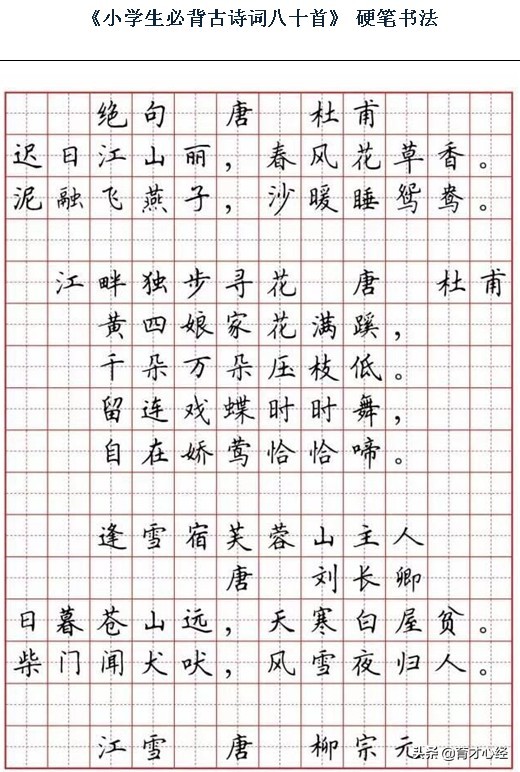 《小学生必背古诗词八十首》 硬笔书法
绝句 唐 杜甫
迟日江山丽，春风花草香。
泥融飞燕子，沙暖睡鸳鸯。
江畔独步寻花 唐 杜甫
黄四娘家花满蹊，
千朵万朵压枝低。
留连戏蝶时时舞，
自在娇莺恰恰啼。
逢雪宿芙蓉山主人
唐 刘长卿
日暮苍山远，天寒白屋贫。
柴门闻犬吠，风雪夜归人。
江雪 唐 柳宗元
头条 @育才心经